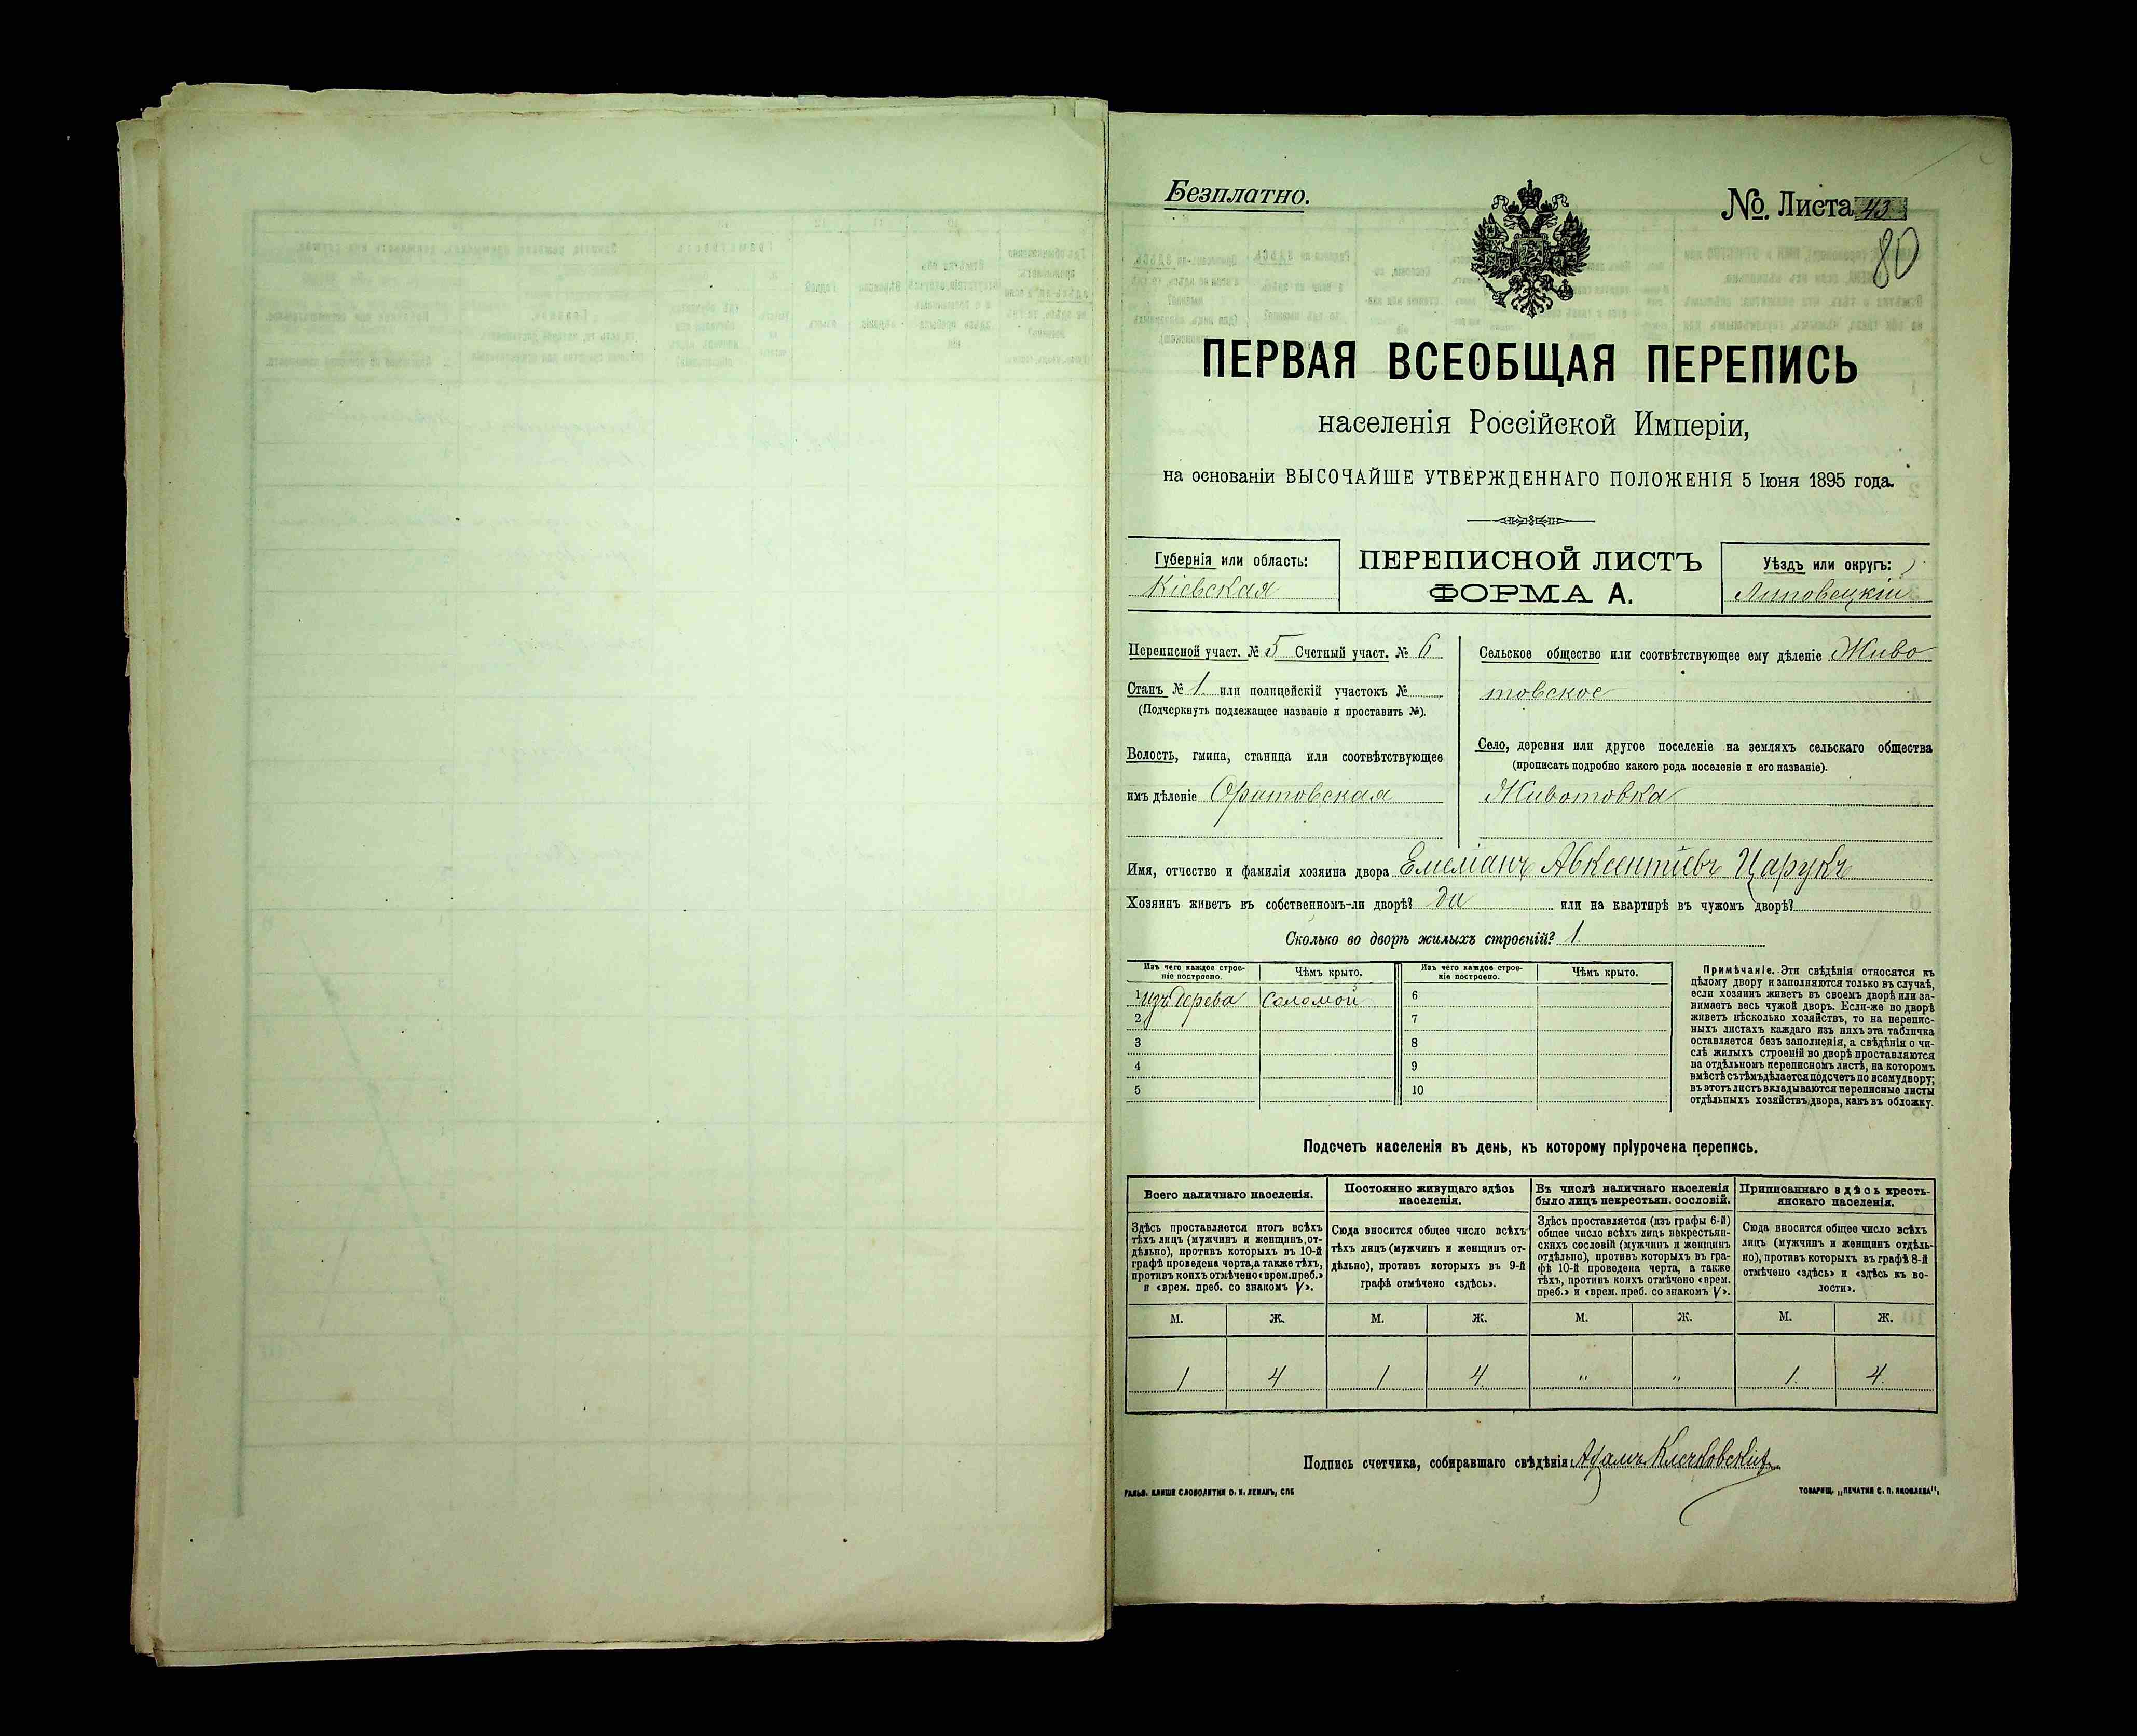 Безплатно.
№. Листа 43
80
ПЕРВАЯ ВСЕОБЩАЯ ПЕРЕПИСЬ
населенія Россійской Имперіи,
на основаніи ВЫСОЧАЙШЕ УТВЕРЖДЕННАГО ПОЛОЖЕНІЯ 5 Іюня 1895 года.
Губернія или область:
Кіевская
ПЕРЕПИСНОЙ ЛИСТЪ
ФОРМА А.
Уѣздъ или округъ:
Липовецкій
Переписной участ. № 5 Счетный участ. № 6
Станъ № 1 или полицейскій участокъ №
(Подчеркнуть подлежащее названіе и проставить №).
Волость, гмина, станица или соотвѣтствующее
имъ дѣленіе Оратовская
Сельское общество или соотвѣтствующее ему дѣленіе Живо
товское
Село, деревня или другое поселеніе на земляхъ сельскаго общества
(прописать подробно какого рода поселеніе и его названіе).
Животовка
Имя, отчество и фамилія хозяина двора Емеліанъ Авксентіевъ Царукъ
Хозяинъ живетъ въ собственномъ-ли дворѣ? да или на квартирѣ въ чужомъ дворѣ?
Сколько во дворѣ жилыхъ строеній? 1.
Изъ чего каждое строе-
ніе построено.
Чѣмъ крыто.
Изъ чего каждое строе-
ніе построено.
Чѣмъ крыто.
1 изъ дерева Соломой 6
2 7
3 8
4 9
5 10
Примѣчаніе. Эти свѣдѣнія относятся къ
цѣлому двору и заполняются только въ случаѣ,
если хозяинъ живетъ въ своемъ дворѣ или за-
нимаетъ весь чужой дворъ. Если-же во дворѣ
живетъ нѣсколько хозяйствъ, то на перепис-
ныхъ листахъ каждаго изъ нихъ эта табличка
оставляется безъ заполненія, а свѣдѣнія о чи-
слѣ жилыхъ строеній во дворѣ проставляются
на отдѣльномъ переписномъ листѣ, на которомъ
вмѣстѣ съ тѣмъ дѣлается подсчетъ по всему двору;
въ этотъ листъ вкладываются переписные листы
отдѣльныхъ хозяйствъ двора, какъ въ обложку.
Подсчетъ населенія въ день, къ которому пріурочена перепись.
Всего наличнаго населенія.
Здѣсь проставляется итогъ всѣхъ
тѣхъ лицъ (мужчинъ и женщинъ, от-
дѣльно), противъ которыхъ въ 10-й
графѣ проведена черта, а также тѣхъ,
противъ коихъ отмѣчено «врем. преб.»
и «врем. преб. со знакомъ V».
Постоянно живущаго здѣсь
населенія.
Сюда вносится общее число всѣхъ
тѣхъ лицъ (мужчинъ и женщинъ от-
дѣльно), противъ которыхъ въ 9-й
графѣ отмѣчено «здѣсь».
Въ числѣ наличнаго населенія
было лицъ некрестьян. сословій.
Здѣсь проставляется (изъ графы 6-й)
общее число всѣхъ лицъ некрестьян-
скихъ сословій (мужчинъ и женщинъ
отдѣльно), противъ которыхъ въ гра-
фѣ 10-й проведена черта, а также
тѣхъ, противъ коихъ отмѣчено «врем.
преб.» и «врем. преб. со знакомъ V».
Приписаннаго здѣсь кресть-
янскаго населенія.
Сюда вносится общее число всѣхъ
лицъ (мужчинъ и женщинъ отдѣль-
но), противъ которыхъ въ графѣ 8-й
отмѣчено «здѣсь» и «здѣсь къ во-
лости».
М. Ж. М. Ж. М. Ж. М. Ж.
1 4 1 4. " " 1. 4.
Подпись счетчика, собиравшаго свѣдѣнія Адамъ Клечковскій
ГАЛЬВ. КЛИШЕ СЛОВОЛИТНИ О. И. ЛЕМАНЪ, СПБ
ТОВАРИЩ. „ПЕЧАТНЯ С. П. ЯКОВЛЕВА",